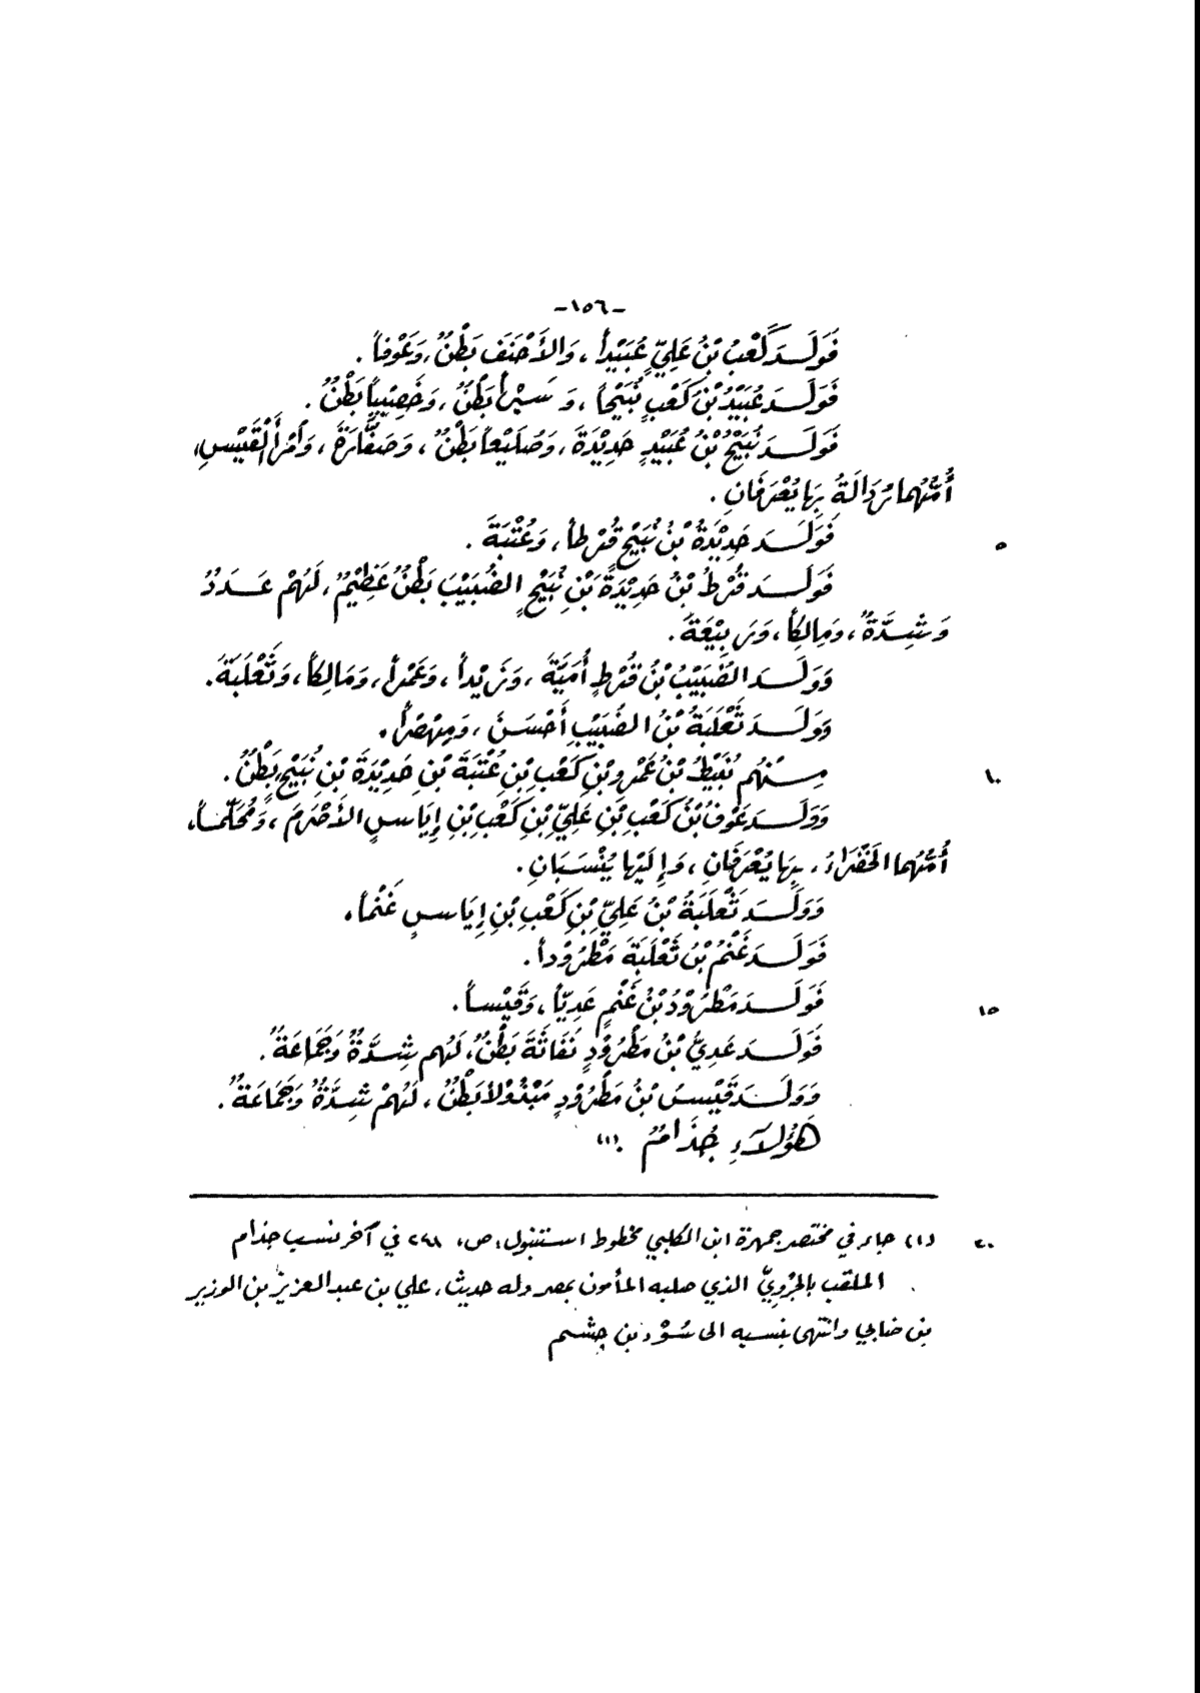 -١٥٦-
فَوَلَدَ كَعْبُ بْنُ عَلِيٍّ عُبَيْداً، وَالأَحْنَفَ بَطْنٌ، وَعَوْفاً.
فَوَلَدَ عُبَيْدُ بْنُ كَعْبٍ نُبَيْحاً، وَ بَطْنٌ، وَخَصِيْباً بَطْنٌ.
فَوَلَدَ نُبَيْحُ بْنُ عُبَيْدٍ حَدِيْدَةَ، وَصُلَيْعاً بَطْنٌ، وَصَفَّارَةَ، وَأمْرَأَ الْقَيْسِ،
أُمُّهُما رَدَالَةُ بِهَا يُعْرَفَانِ.
فَوَلَدَ حَدِيْدَةُ بْنُ نُبَيْحٍ قُرْطاً، وَعُتْبَةَ. ٥
فَوَلَدَ قُرْطُ بْنُ حَدِيْدَةَ بْنِ نُبَيْحٍ الضُّبَيْبَ بَطْنٌ عَظِيْمٌ، لَهُمْ عَدَدٌ
وَشِدَّةٌ، وَمَالِكاً، وَرَبِيْعَةَ.
وَوَلَدَ الضُّبَيْبُ بْنُ قُرْطٍ أُمَيَّةَ، وَزَيْداً، وَعَمْراً، وَمَالِكاً، وَثَعْلَبَةَ.
وَوَلَدَ ثَعْلَبَةُ بْنُ الضُّبَيْبِ أَحْسَنَ، وَمِهْصَراً.
مِنْهُم نُبَيْطُ بْنُ عَمْرِو بْنِ كَعْبِ بْنِ عُتْبَةَ بْنِ حَدِيْدَةَ بْنِ نُبَيْحٍ، بَطْنٌ. ١٠
وَوَلَدَ عَوْفُ بْنُ كَعْبِ بْنِ عَلِيِّ بْنِ كَعْبِ بْنِ إِيَاسٍ الأَصْرَمَ، وَمُحَلِّماً،
أُمُّهُما الخَضْرَاءُ، بِهَا يُعْرَفَانِ، وَإِلَيْهَا يُنْسَبَانِ.
وَوَلَدَ ثَعْلَبَةُ بْنُ عَلِيِّ بْنِ كَعْبِ بْنِ إِيَاسٍ غَنْماً.
فَوَلَدَ غَنْمُ بْنُ ثَعْلَبَةَ مَطْرُوْداً.
فَوَلَدَ مَطْرُوْدُ بْنُ غَنْمٍ عَدِيّاً، وَقَيْساً. ١٥
فَوَلَدَ عَدِيُّ بْنُ مَطْرُوْدٍ نُفَاثَةَ بَطْنٌ، لَهُم شِدَّةٌ وَجَمَاعَةٌ.
وَوَلَدَ قَيْسُ بْنُ مَطْرُوْدٍ مَبْذُوْلاً بَطْنٌ، لَهُمْ شِدَّةٌ وَجَمَاعَةٌ.
هَؤُلَاءِ جُذَامٌ.(١)
(١) جاء في مختصر جمهرة ابن الكلبي مخطوط استنبول: ص، ٢٤٨ في آخر نسب جذام ٢٠
الملقب بالجَرْوِيّ الذي صلبه المأمون بمصر وله حديث، علي بن عبد العزيز بن الوزير
بن ضابي وانتهى بنسبه الى سُوْد بن جِشم